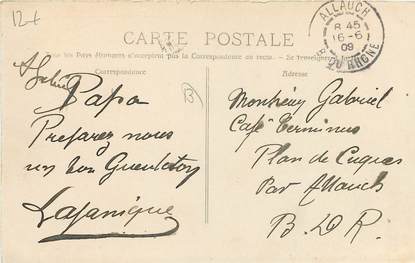 12+
CARTE POSTALE
Tous les Pays étrangers n'acceptent pas la Correspondance au recto. — Se renseigner
Correspondance
Adresse
ALLAUCH
8 45
16-6
09
B. DU RHÔNE
Papa
Preparez nous
un bon
B
Gabriel
Café Terminus
Plan de Cuques
Par Allauch
B. D. R.